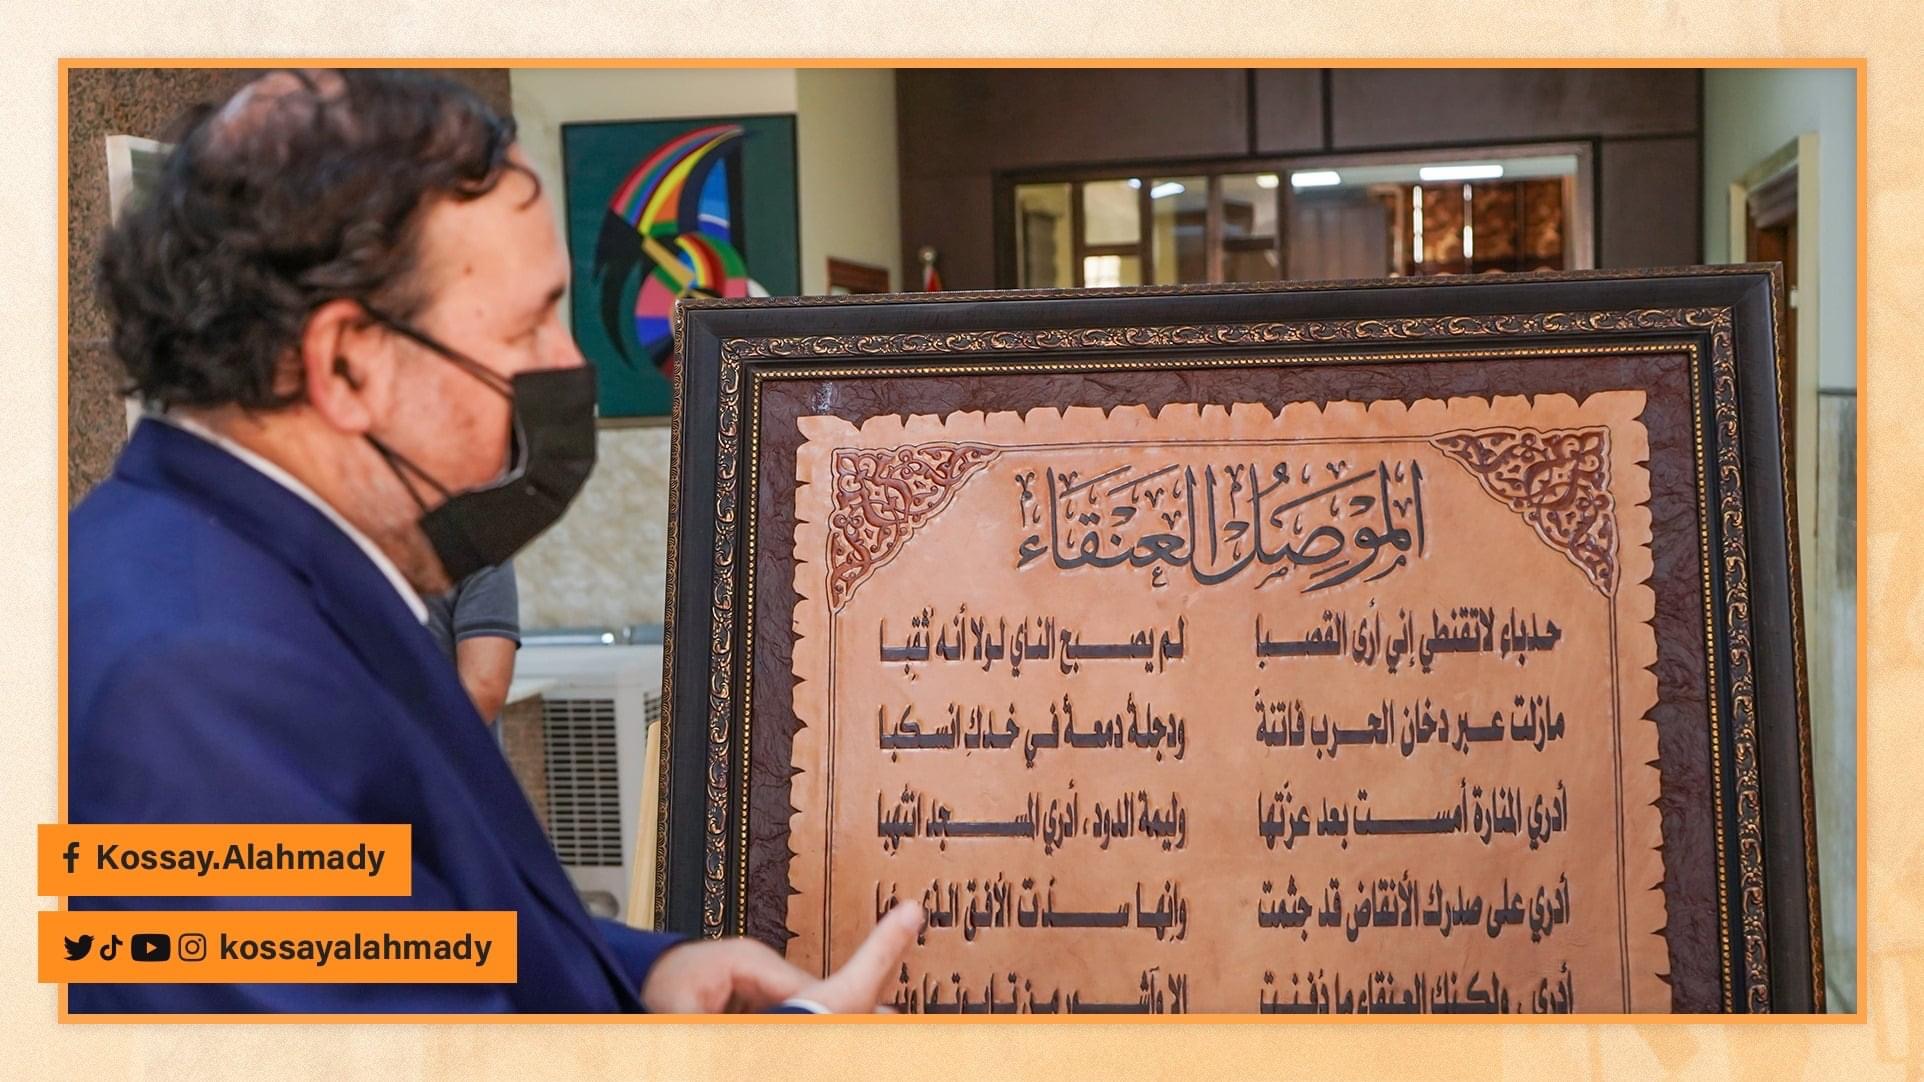 المَوْصِلُ العَنقَاءُ
حدباءِ لاتقنطي إني أرى القصبا لم يصبح الناي لولا أنه ثُقِبا
مازلت عبر دخان الحرب فاتنةً ودجلةٌ دمعةٌ في خدكِ انسكبا
أدري المنارة أمست بعد عزّتها وليمة الدود ، أدري المسجد انتُهِبا
أدري على صدرك الأنقاض قد جثمت وإنها سدّت الأفق الذي
أدري ، ولكنك العنقاء ما دُفنت إلا وآشور من تابوتها
Kossay.Alahmady
kossayalahmady